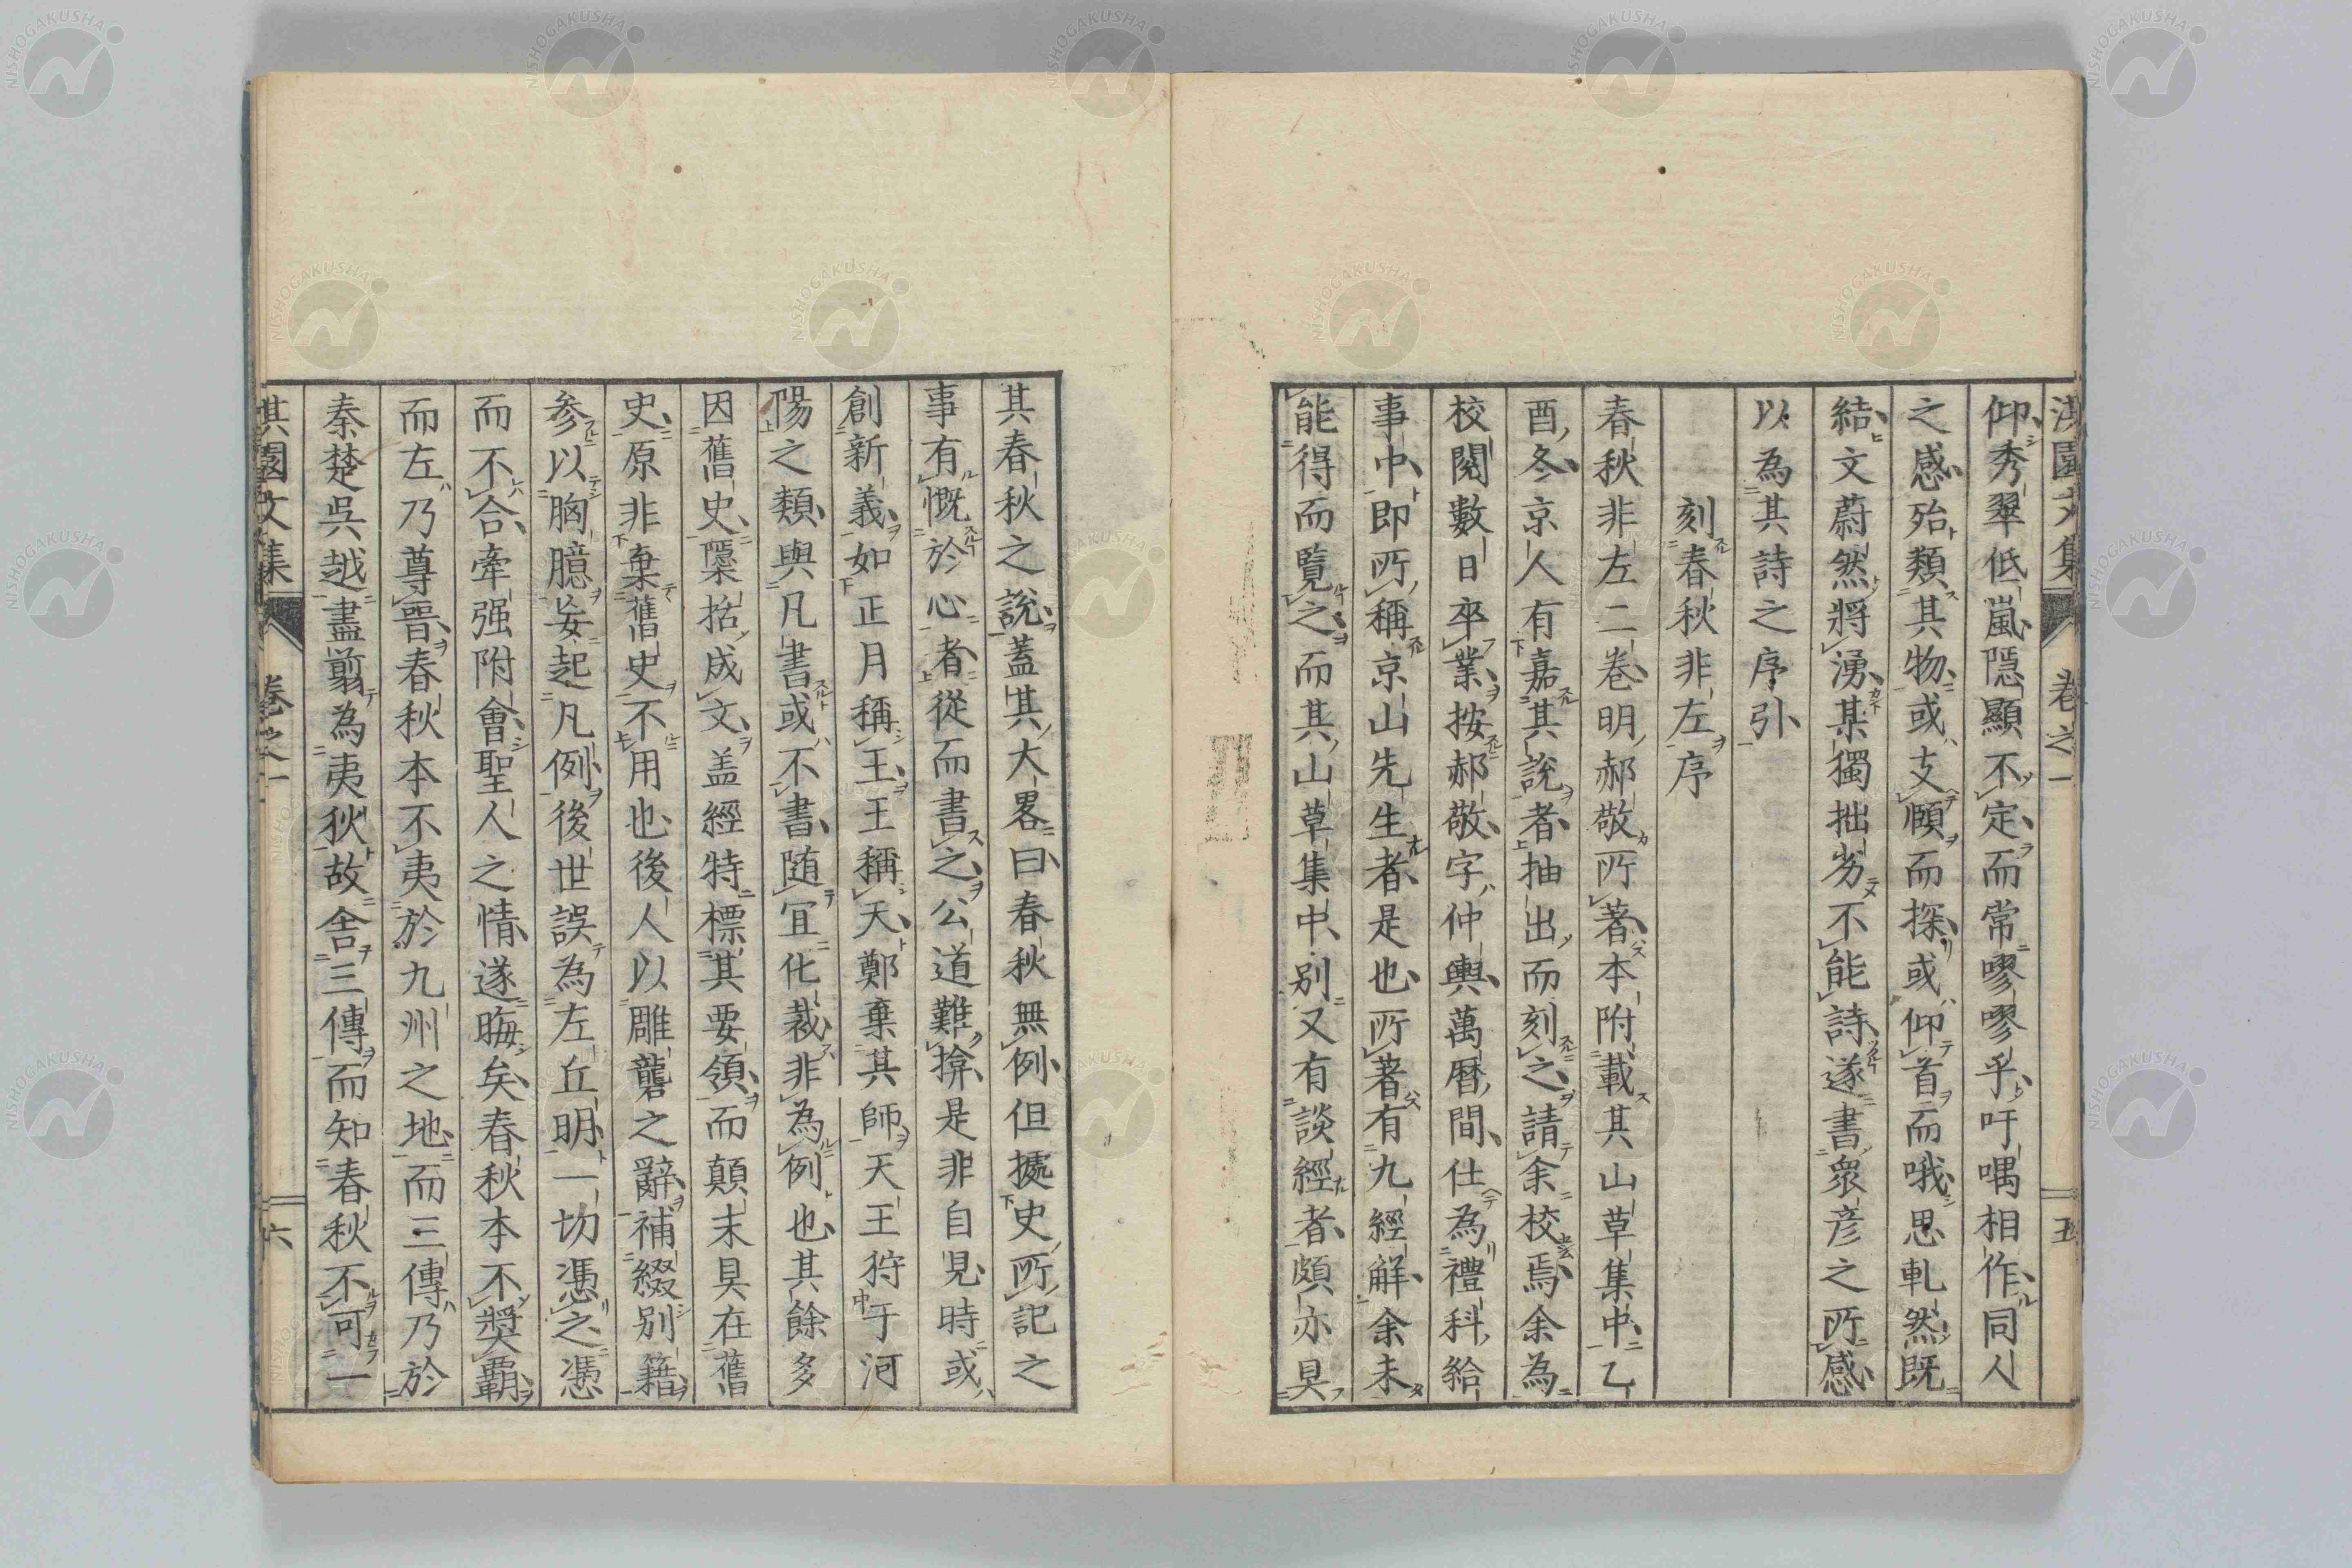 淇園文集 卷之一 五
仰秀翠低嵐隱顯不定而常嘐嘐乎吁喁相作同人
之感殆類其物或支頤而探或仰首而哦思軋然既
結文蔚然將湧某獨拙劣不能詩遂書衆彦之所感
以為其詩之序引
刻春秋非左序
春秋非左二卷明郝敬所著本附載其山草集中乙
酉冬京人有嘉其說者抽出而刻之請余校焉余為
校閱數日卒業按郝敬字仲輿萬曆間仕為禮科給
事中即所稱京山先生者是也所著有九經解余未
能得而覽之而其山草集中別又有談經者頗亦具
其春秋之說蓋其大畧曰春秋無例但據史所記之
事有慨於心者從而書之公道難揜是非自見時或
創新義如正月稱王王稱天鄭棄其師天王狩于河
陽之類與凡書或不書隨宜化裁非為例也其餘多
因舊史檃括成文盖經特標其要領而顛末具在舊
史原非棄舊史不用也後人以雕龔之辭補綴別籍
参以胸臆妄起凡例後世誤為左丘明一切憑之憑
而不合牽强附會聖人之情遂晦矣春秋本不奬覇
而左乃尊晋春秋本不夷於九州之地而三傳乃於
秦楚吳越盡剪為夷狄故舎三傳而知春秋不可一
淇園文集 卷之一 六
NISHOGAKUSHA